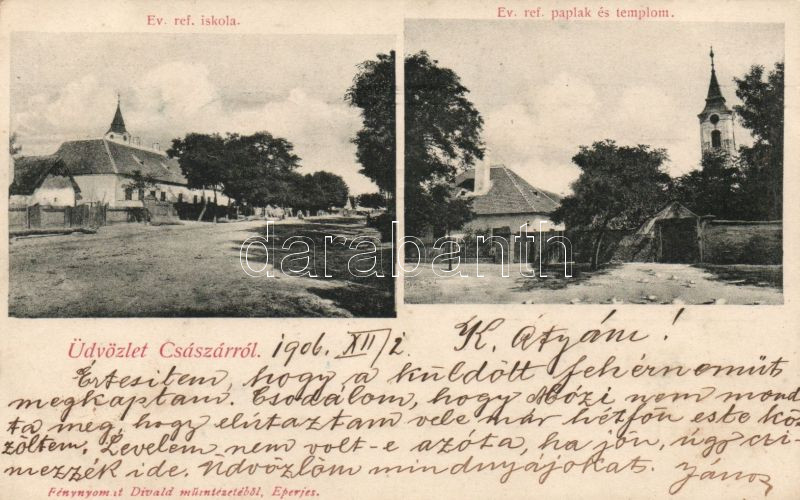 Ev. ref. iskola.
Ev. ref. paplak és templom.
darabanth
Üdvözlet Császárról. 1906. XII/2. K. Atyám!
Ertesitem, hogy a küldött fehérneműt
megkaptam. Csodálom, hogy Józi nem mond
ta meg, hogy elútaztam vele már hétfőn este köz
zöltem. Levelem nem volt-e azóta, ha jön, úgy czi-
mezzék ide. Üdvözlöm mindnyájokat. János
Fénynyomat Divald műintézetéből, Eperjes.